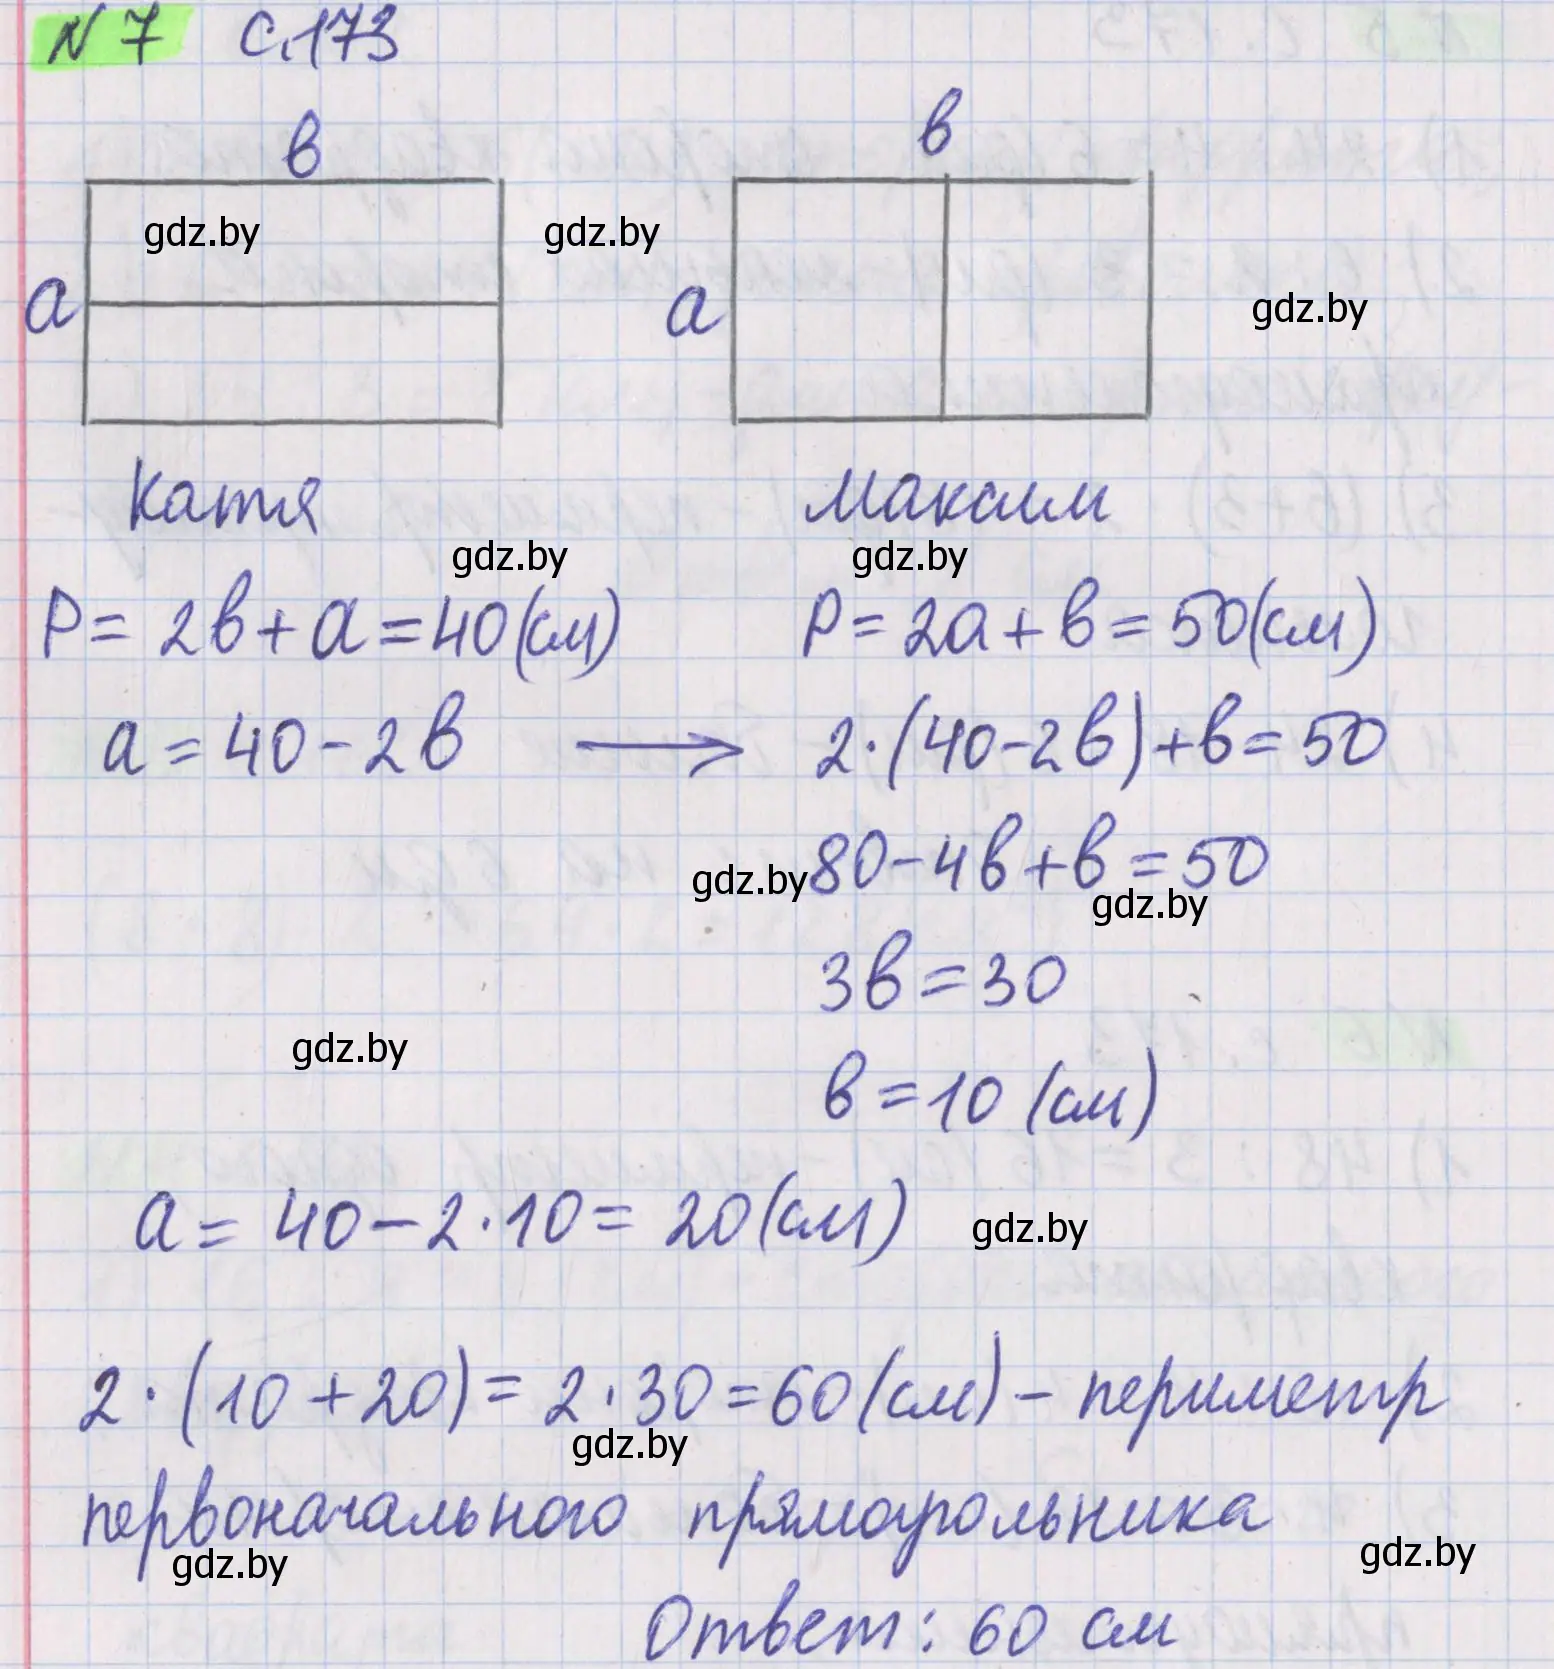 N 7 с.173
в в
gdz.by gdz.by
а а gdz.by
Катя Максим
gdz.by gdz.by
P = 2в + а = 40 (см) P = 2а + в = 50 (см)
а = 40 - 2в → 2·(40-2в)+в=50
80-4в+в=50
gdz.by gdz.by
3в = 30
gdz.by
в = 10 (см)
а = 40 - 2·10 = 20 (см)
gdz.by
2·(10+20) = 2·30 = 60 (см) - периметр
gdz.by
первоначального прямоугольника
gdz.by gdz.by
Ответ: 60 см